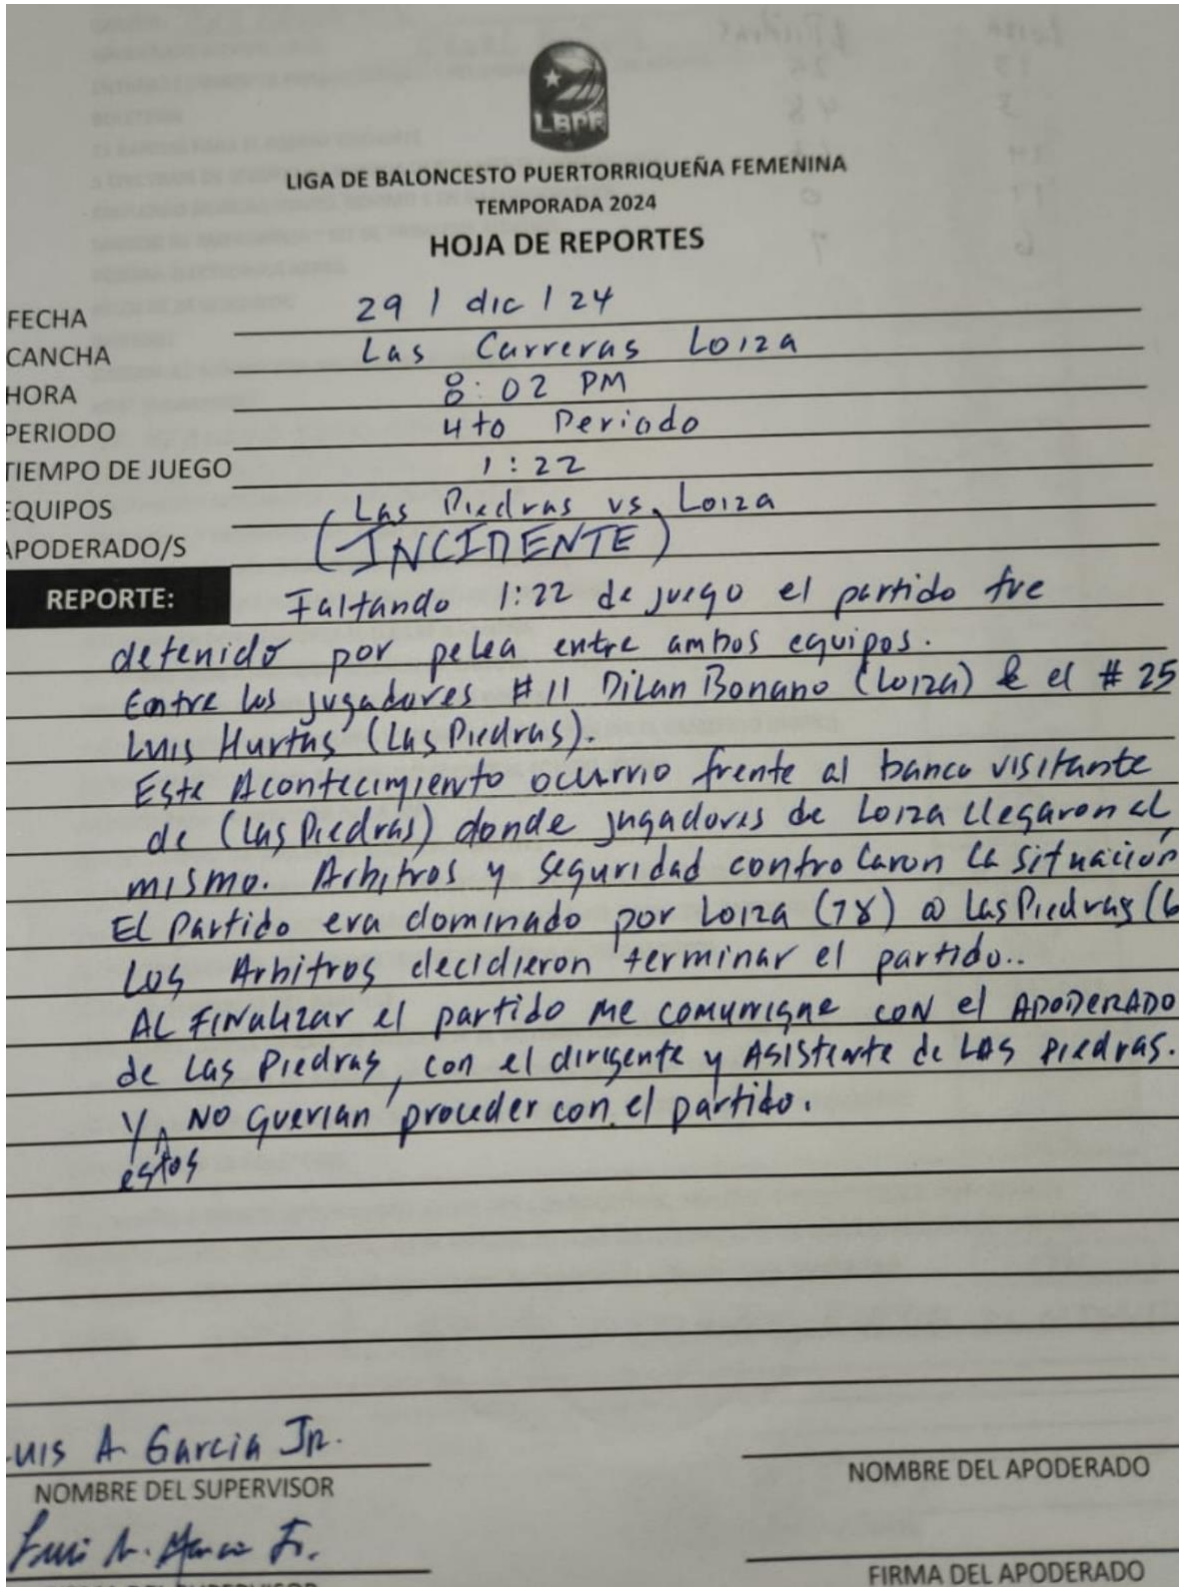 LBPR
LIGA DE BALONCESTO PUERTORRIQUEÑA FEMENINA
TEMPORADA 2024
HOJA DE REPORTES
FECHA 29 / dic / 24
CANCHA Las Carreras Loiza
HORA 8:02 PM
PERIODO 4to Periodo
TIEMPO DE JUEGO 1:22
EQUIPOS Las Piedras vs. Loiza
APODERADO/S (INCIDENTE)
REPORTE: Faltando 1:22 de juego el partido fue
detenido por pelea entre ambos equipos.
Entre los jugadores #11 Dilan Bonano (Loiza) & el #25
Luis Hurtas (Las Piedras).
Este Acontecimiento ocurrio frente al banco visitante
de (Las Piedras) donde jugadores de Loiza llegaron al
mismo. Arbitros y seguridad controlaron la situación
El Partido era dominado por Loiza (78) @ Las Piedras (6
Los Arbitros decidieron terminar el partido..
AL FINalizar el partido me comunique con el APODERADO
de Las Piedras, con el dirigente y Asistente de LAS Piedras.
Y estos NO Querian proceder con el partido.
Luis A Garcia Jr.
NOMBRE DEL SUPERVISOR
NOMBRE DEL APODERADO
FIRMA DEL APODERADO